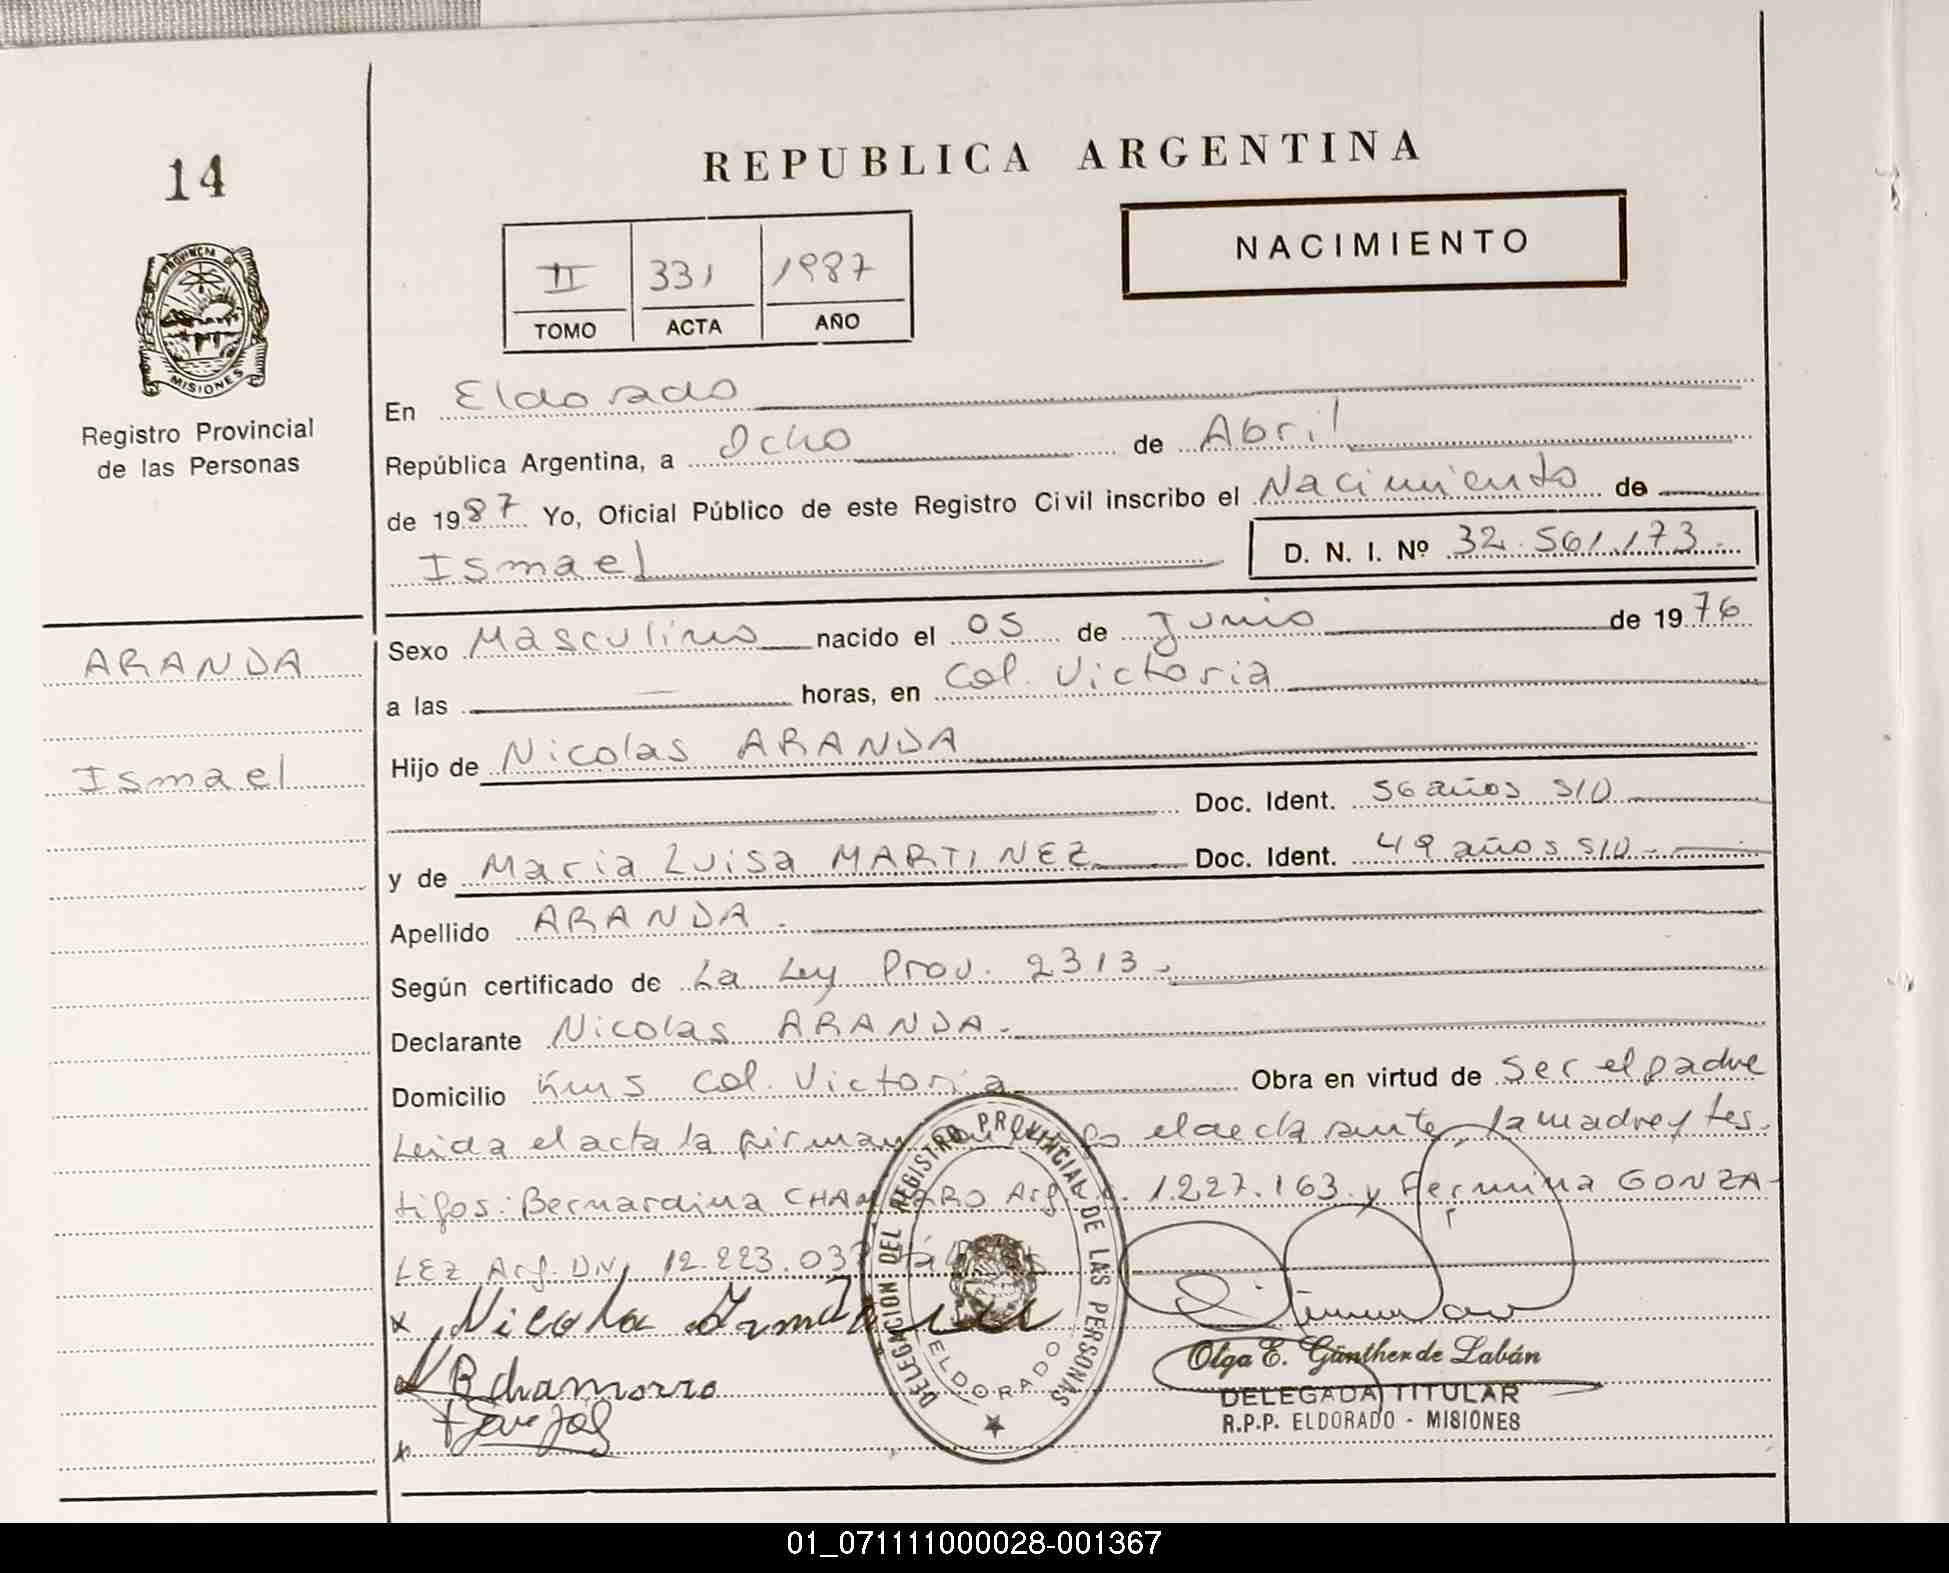 14
REPUBLICA ARGENTINA
NACIMIENTO
II 331 1987
TOMO ACTA AÑO
PROVINCIA DE
MISIONES
Registro Provincial
de las Personas
En Eldorado
República Argentina, a Ocho de Abril
de 1987 Yo, Oficial Público de este Registro Civil inscribo el Nacimiento de
Ismael D. N. I. Nº 32.561.173.
ARANDA
Ismael
Sexo Masculino nacido el 05 de Junio de 1976
a las — horas, en Col. Victoria
Hijo de Nicolas ARANDA
Doc. Ident. 56 años S/D
y de Maria Luisa MARTINEZ Doc. Ident. 49 años S/D
Apellido ARANDA.
Según certificado de La Ley Prov. 2313.
Declarante Nicolas ARANDA.
Domicilio Km5 Col. Victoria Obra en virtud de ser el padre
Leida el acta la firman el declarante, la madre y tes-
tigos: Bernardina CHAMORRO Arg. 1.227.163 y Fermina GONZA-
LEZ Arg. DNI 12.223.037
x Nicola
B chamorro
x
DELEGACION DEL REGISTRO PROVINCIAL DE LAS PERSONAS
ELDORADO
Olga E. Günther de Labán
DELEGADA TITULAR
R.P.P. ELDORADO - MISIONES
01_071111000028-001367